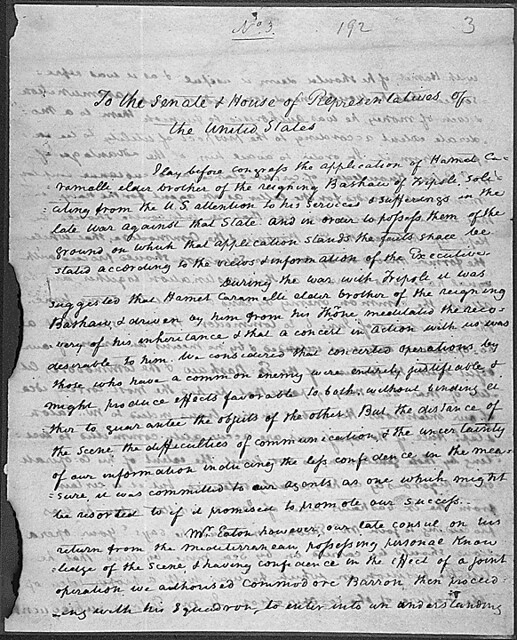 No 3.
192
3
To the Senate & House of Representatives of
the United States
I lay before congress the application of Hamet Ca-
ramalli elder brother of the reigning Bashaw of Tripoli, Soli-
citing from the U.S attention to his services & sufferings in the
late war against that State and in order to possess them of the
ground on which that application stands the facts shall be
stated according to the views & information of the Executive
During the war with Tripoli it was
suggested that Hamet Caramalli elder brother of the reigning
Bashaw & driven by him from his throne meditated the reco-
very of his inheritance & that a concert in action with us was
desirable to him. We considered that concerted operations by
those who have a common enemy were entirely justifiable &
might produce effects favorable to both without binding ei
ther to guarantee the objects of the other. But the distance of
the scene the difficulties of communication & the uncertainty
of our information inducing the less confidence in the mea
sure, it was committed to our agents as one which might
be resorted to if it promised to promote our success.
Mr. Eaton however, our late consul on his
return from the Mediterranean possessing personal know
ledge of the scene & having confidence in the effect of a joint
operation we authorised Commodore Barron then proceed
-ing with his Squadron to enter into an understanding